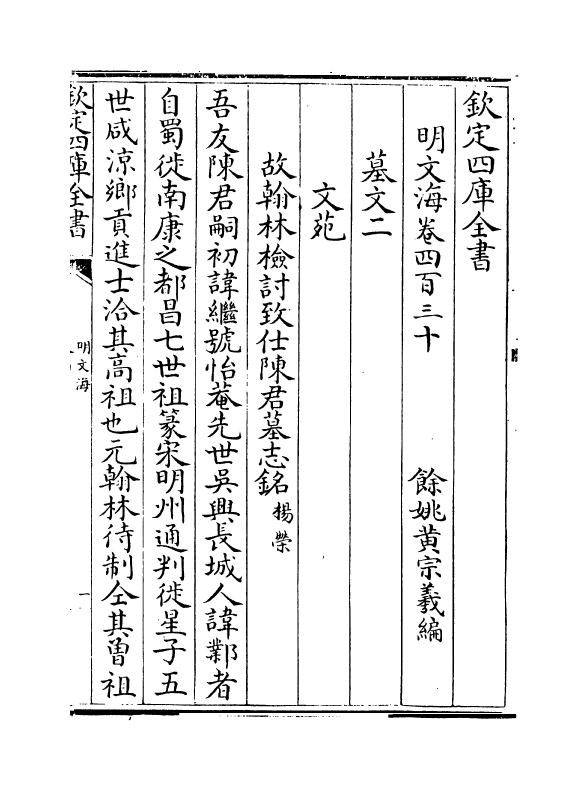 欽定四庫全書
明文海卷四百三十 餘姚黃宗羲編
墓文二
文苑
故翰林檢討致仕陳君墓志銘 楊榮
吾友陳君嗣初諱繼號怡菴先世吳興長城人諱鄴者
自蜀徙南康之都昌七世祖篆宋明州通判徙星子五
世咸淳鄉貢進士洽其高祖也元翰林待制仝其曽祖
欽定四庫全書
明文海
一